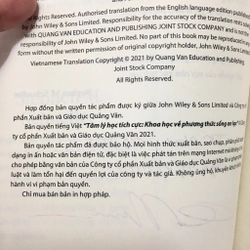 Rights Reserved. Authorised translation from the English language edition published
John Wiley & Sons Limited. Responsibility for the accuracy of the translation rests
with QUANG VAN EDUCATION AND PUBLISHING JOINT STOCK COMPANY and is not the
responsibility of John Wiley & Sons Limited. No part of this book may be reproduced in any
form without the written permission of original copyright holder, John Wiley & Sons Limited.
Vietnamese Translation Copyright © 2021 by Quang Van Education and Publishing
Joint Stock Company
All Rights Reserved.
Hợp đồng bản quyền tác phẩm được ký giữa John Wiley & Sons Limited và Công ty
cổ phần Xuất bản và Giáo dục Quảng Văn.
Bản quyền tiếng Việt "Tâm lý học tích cực: Khoa học về phương thức sống an lạc"
phần Xuất bản và Giáo dục Quảng Văn 2021.
Bản quyền tác phẩm đã được bảo hộ. Mọi hình thức xuất bản, sao chụp, phân phối
dạng in ấn hoặc văn bản điện tử, đặc biệt là việc phát tán trên mạng Internet mà không
cho phép bằng văn bản của Công ty cổ phần Xuất bản và Giáo dục Quảng Văn là
luật và làm tổn hại đến quyền lợi của công ty và tác giả. Không ủng hộ, khuyến khích
hành vi vi phạm bản quyền.
Chỉ mua bán bản in hợp pháp.